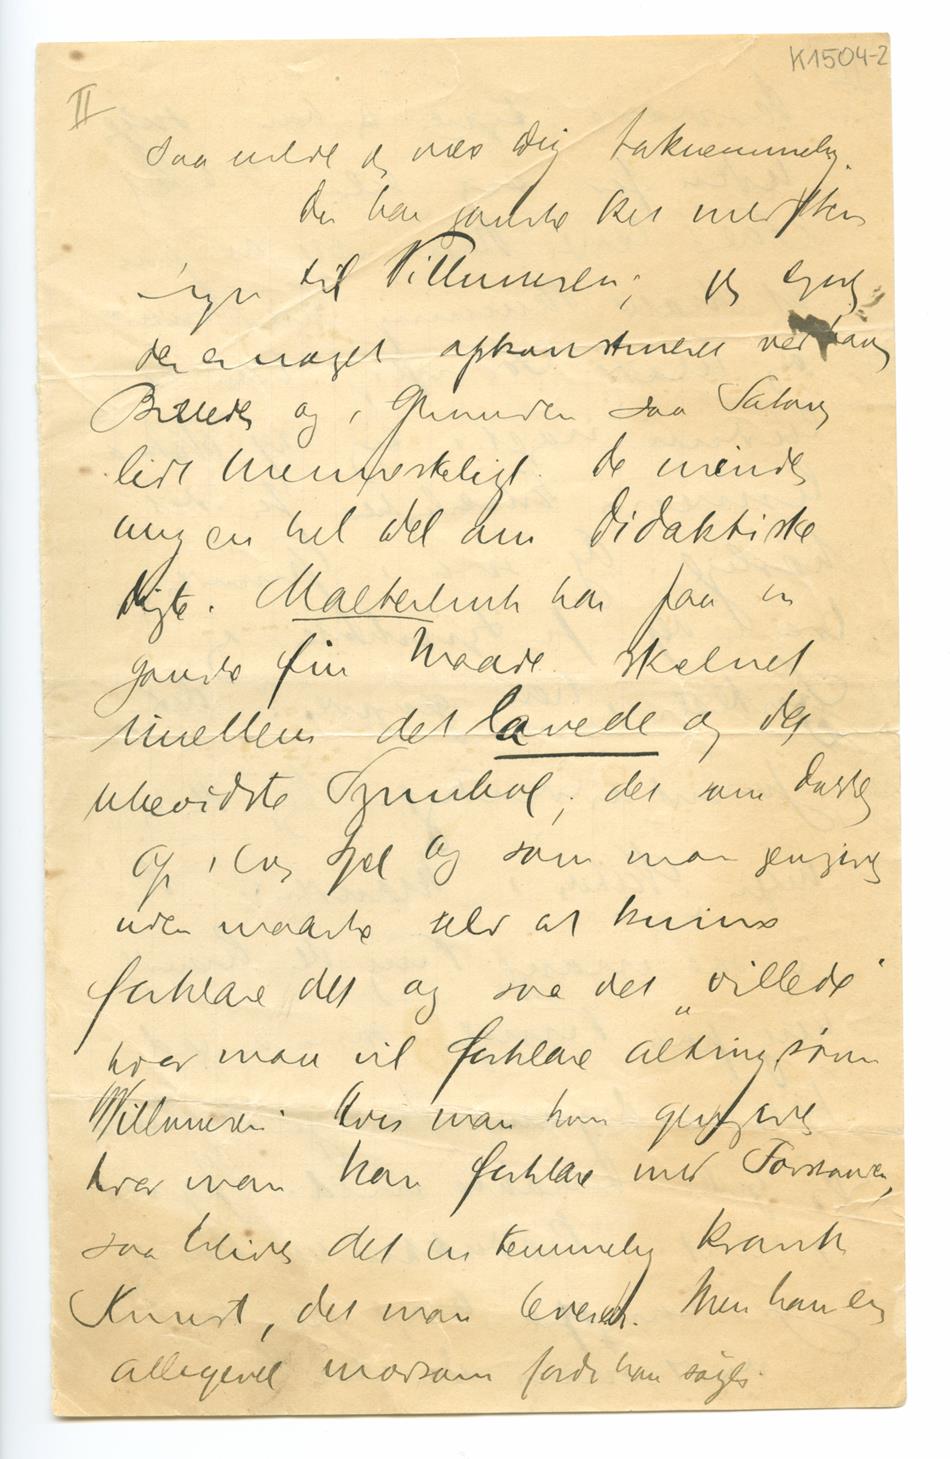 K1504-2
II
saa vilde jeg være Dig taknemmelig.
Du har ganske Ret med Hen
til Willumsen; jeg synes
der er noget opkonstrueret ved hans
Billeder og i Grunden saa
lidt menneskeligt. De minder
mig en hel del om didaktiske
Digte. Maeterlinck har paa en
ganske fin Maade skelnet
imellem det lavede og det
ubevidste Symbol; det som dukker
op i Ens Sjæl og som man gengiver
uden maaske selv at kunne
forklare det og saa det „villede"
hvor man vil forklare alting, som
Willumsen. Hvis man kun gengiver
hvad man kan forklare med Forstanden,
saa bliver det en temmelig krank
Kunst, det man leverer. Men han er
alligevel morsom fordi han søger.